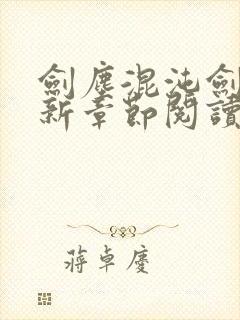 劍塵混沌劍
新章節閱讀
蔣卓慶